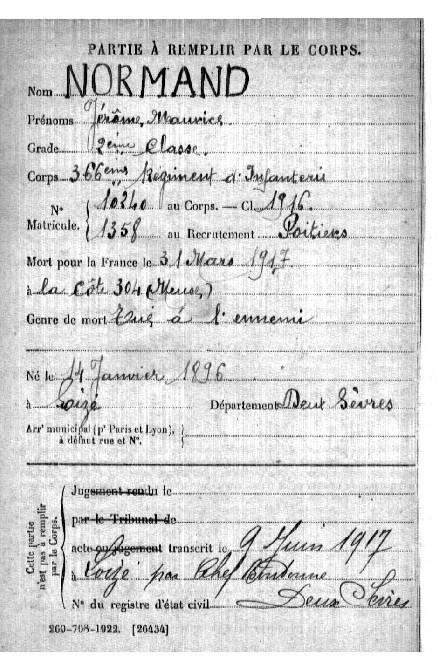 PARTIE À REMPLIR PAR LE CORPS.
Nom NORMAND
Prénoms Jérôme, Maurice.
Grade 2ème Classe.
Corps 366ème Régiment d'Infanterie
N° Matricule. 10240 au Corps. — Cl. 1916.
1358 au Recrutement Poitiers
Mort pour la France le 31 Mars 1917
à la Côte 304 (Meuse)
Genre de mort Tué à l'ennemi
Né le 14 Janvier 1896
à Loizé Département Deux Sèvres
Arrt municipal (pr Paris et Lyon), à défaut rue et N°.
Cette partie n'est pas à remplir par le Corps.
Jugement rendu le
par le Tribunal de
acte ou jugement transcrit le 9 Juin 1917
à Loizé par Chef Boutonne
N° du registre d'état civil Deux Sèvres
260-708-1922. [26434]